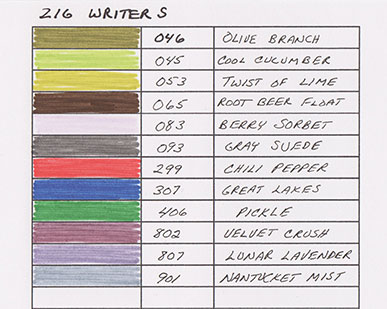 216 WRITERS
046 OLIVE BRANCH
045 COOL CUCUMBER
053 TWIST OF LIME
065 ROOT BEER FLOAT
083 BERRY SORBET
093 GRAY SUEDE
299 CHILI PEPPER
307 GREAT LAKES
406 PICKLE
802 VELVET CRUSH
807 LUNAR LAVENDER
901 NANTUCKET MIST